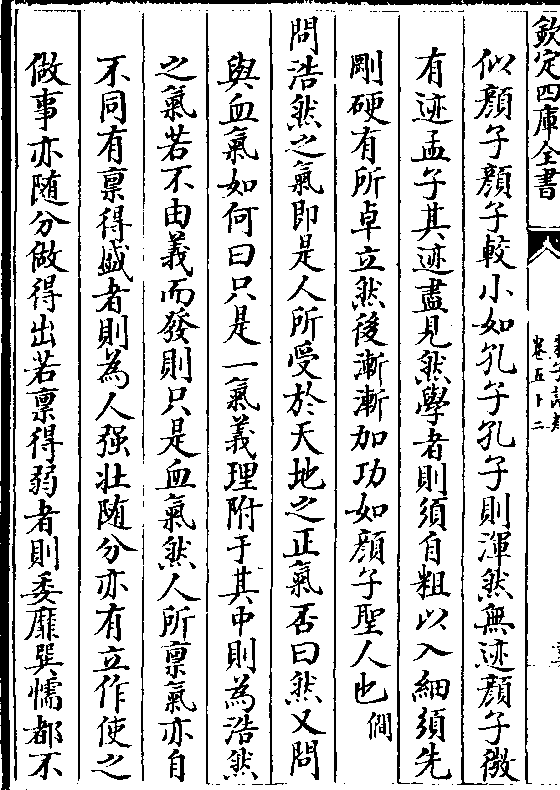 欽定四庫全書
卷五十二
似顔子顔子較小如孔子孔子則渾然無迹顔子微
有迹孟子其迹盡見然學者則須自粗以入細須先
剛硬有所卓立然後漸漸加功如顔子聖人也僩
問浩然之氣即是人所受於天地之正氣否曰然又問
與血氣如何曰只是一氣義理附于其中則為浩然
之氣若不由義而發則只是血氣然人所禀氣亦自
不同有禀得盛者則為人强壯随分亦有立作使之
做事亦随分做得出若禀得弱者則委靡巽懦都不